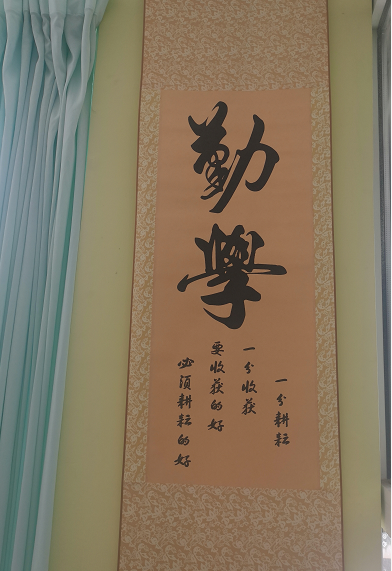 勤學
一分耕耘
一分收获
要收获的好
必须耕耘的好